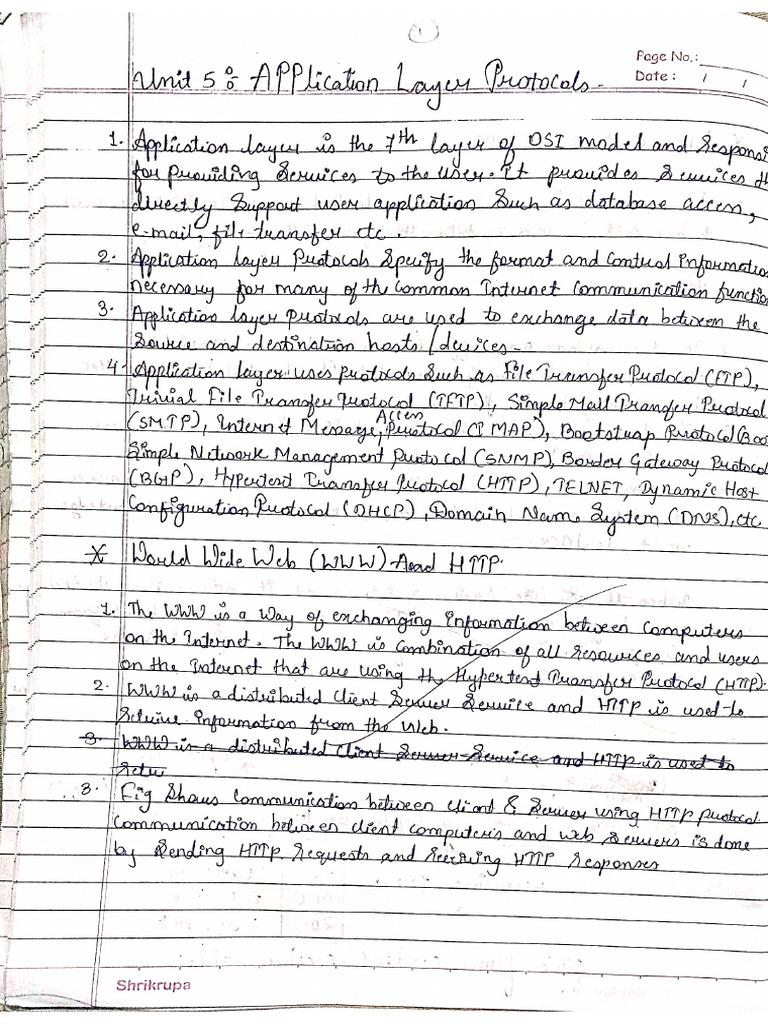 1
Page No.:
Date : / /
Unit 5 : APPlication Layer Protocols.
1. Application layer is the 7th layer of OSI model and responsi
for providing services to the user. It provides services th
directly support user application such as database access,
e-mail, file transfer etc.
2. Application layer Protocols specify the format and control information
necessary for many of the common Internet communication function
3. Application layer protocols are used to exchange data between the
source and destination hosts/devices.
4. Application layer uses protocols such as File Transfer Protocol (FTP),
Trivial File Transfer Protocol (TFTP), Simple Mail Transfer Protocol
(SMTP), Internet Message, Access Protocol (IMAP), Bootstrap Protocol (Boo
Simple Network Management Protocol (SNMP), Border Gateway Protocol
(BGP), Hypertext Transfer Protocol (HTTP), TELNET, Dynamic Host
Configuration Protocol (DHCP), Domain Name System (DNS), etc
* World Wide Web (WWW) And HTTP.
1. The WWW is a way of exchanging information between computers
on the Internet. The WWW is combination of all resources and users
on the Internet that are using the Hypertext Transfer Protocol (HTTP).
2. WWW is a distributed client server service and HTTP is used to
retrive information from the Web.
3. WWW is a distributed client server service and HTTP is used to
retri
3. Fig shows communication between client & server using HTTP protocol
communication between client computers and web servers is done
by sending HTTP requests and receiving HTTP responses
Shrikrupa